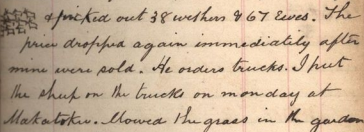 & picked out 38 wethers & 67 Ewes. The
price dropped again immediately after
mine were sold. He orders trucks. I put
the sheep on the trucks on monday at
Makatoku. Mowed the grass in the garden